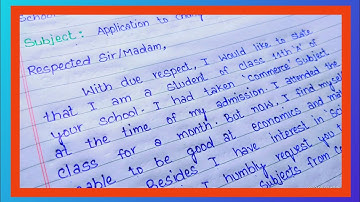 School
Subject: Application to chang
Respected Sir/Madam,
With due respect, I would like to state
that I am a student of class 11th 'A' of
your school. I had taken 'Commerce' Subject
at the time of my admission. I attended the
class for a month. But now, I find myself
able to be good at economics and mat
Besides I have interest in scien
I humbly request you t
subjects from co